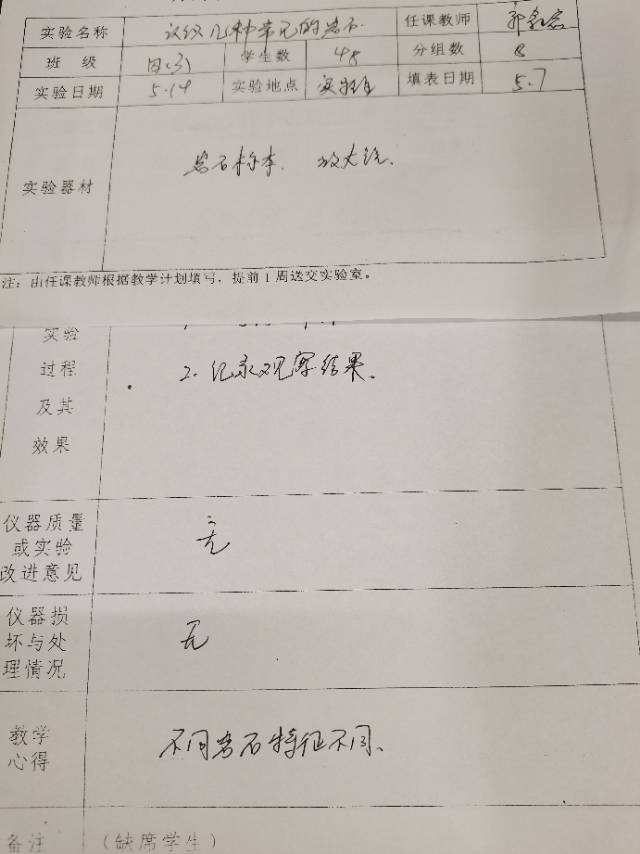 实验名称 认识几种常见的岩石 任课教师
班级 四(3) 学生数 48 分组数 8
实验日期 5.14 实验地点 实验室 填表日期 5.7
实验器材 岩石标本. 放大镜.
注：由任课教师根据教学计划填写，提前1周送交实验室。
实验
过程 2. 记录观察结果.
及其
效果
仪器质量
或实验 无
改进意见
仪器损
坏与处 无
理情况
教学 不同岩石特征不同.
心得
备注 (缺席学生)